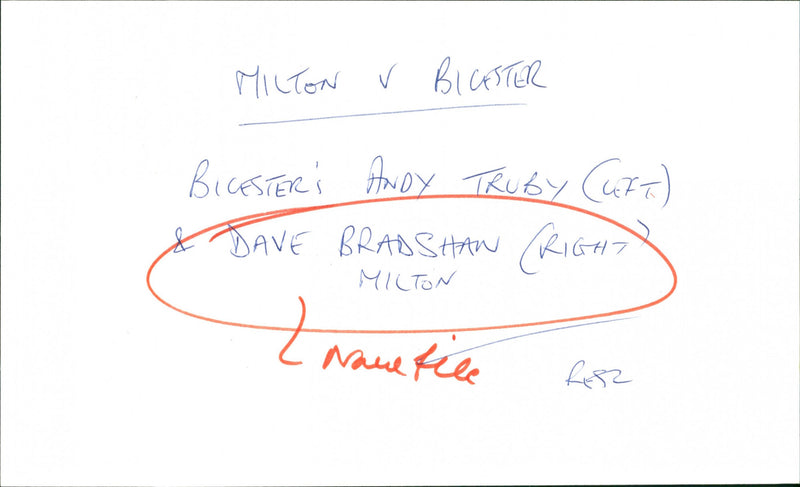 MILTON V BICESTER
BICESTER'S ANDY TRUBY (LEFT)
& DAVE BRADSHAW (RIGHT)
MILTON
Name file